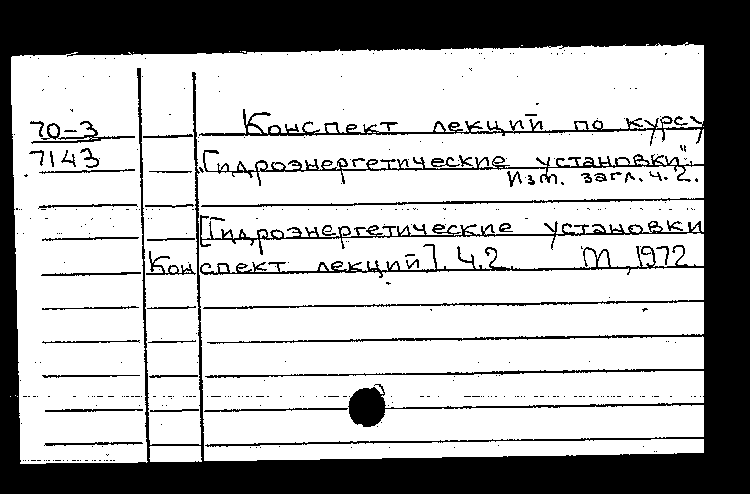 70-3
7143
Конспект лекций по курсу
„Гидроэнергетические установки".
Изм. загл. ч. 2.
[Гидроэнергетические установки
Конспект лекций]. Ч.2. М, 1972